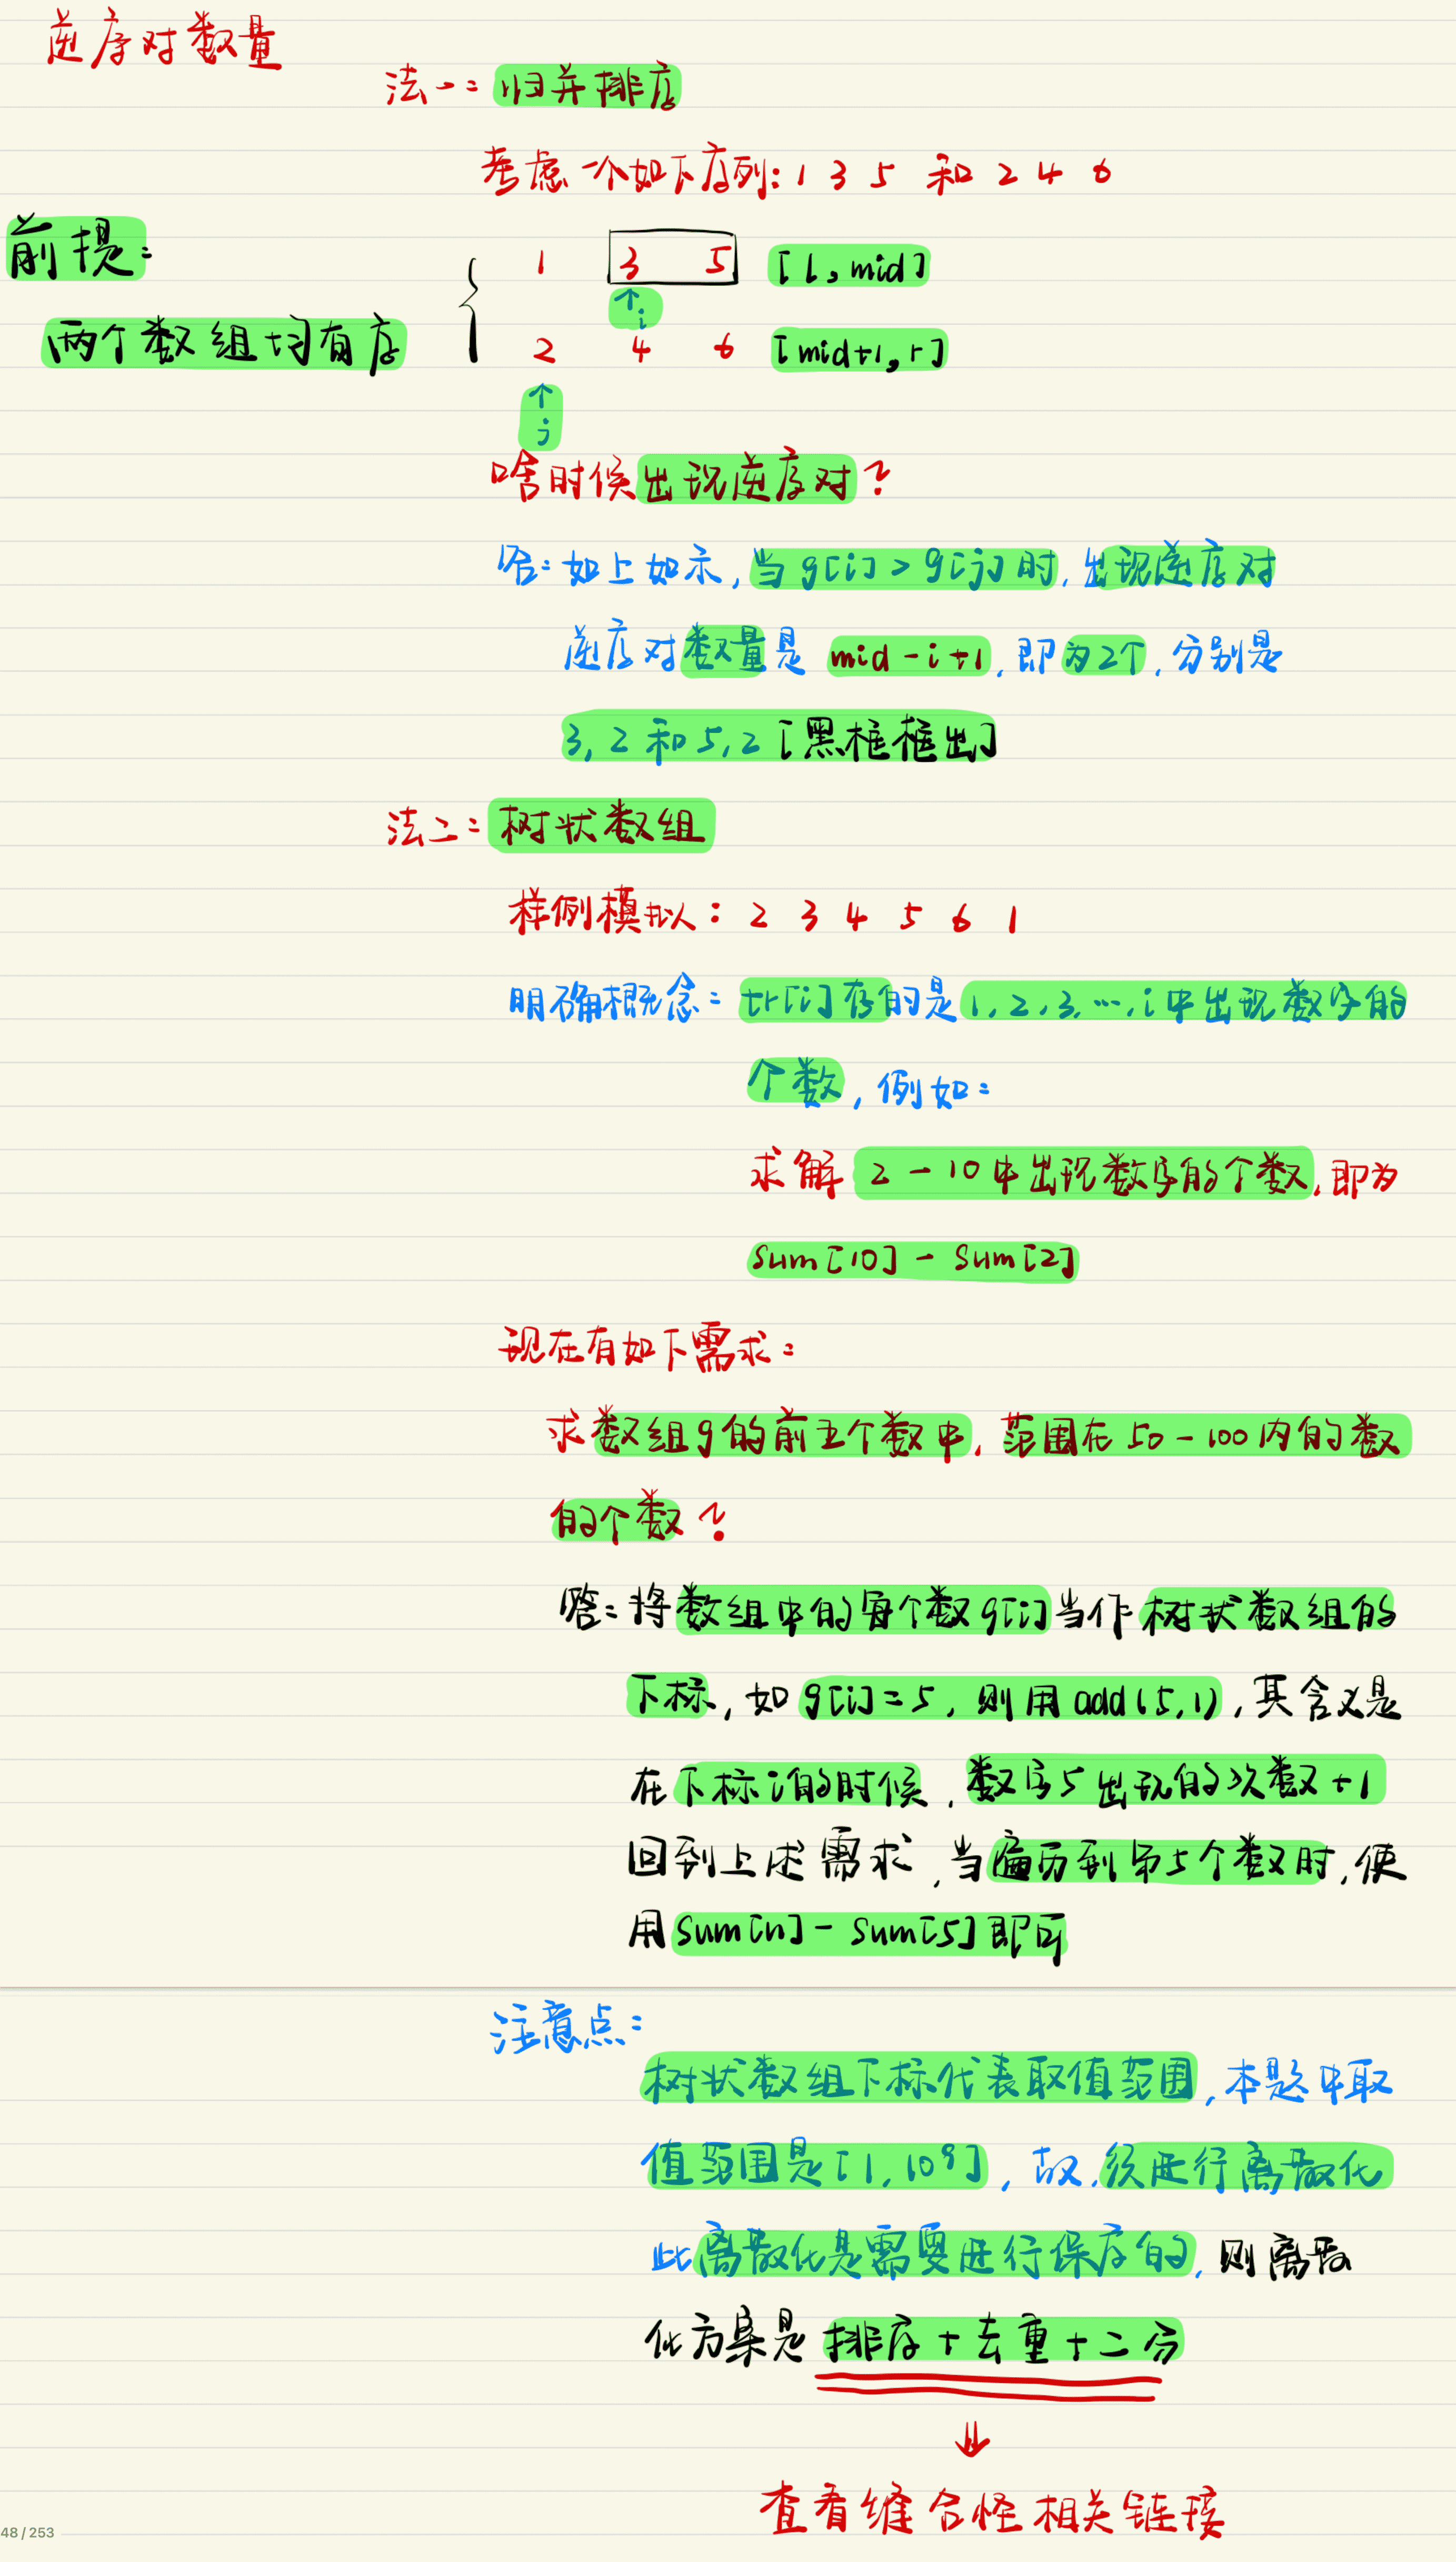 逆序对数量
法一：归并排序
考虑一个如下序列：1 3 5 和 2 4 6
前提：
1 3 5 [l, mid]
↑i
两个数组均有序
2 4 6 [mid+1, r]
↑
j
啥时候出现逆序对？
答：如上如示，当g[i] > g[j]时，出现逆序对
逆序对数量是 mid - i + 1，即为2个，分别是
3, 2 和 5, 2 [黑框框出]
法二：树状数组
样例模拟：2 3 4 5 6 1
明确概念：tr[i]存的是1, 2, 3, …, i中出现数字的
个数，例如：
求解 2 - 10中出现数字的个数，即为
sum[10] - sum[2]
现在有如下需求：
求数组g的前五个数中，范围在50-100内的数
的个数？
答：将数组中的每个数g[i]当作树状数组的
下标，如g[i]=5，则用add(5,1)，其含义是
在下标i的时候，数字5出现的次数+1
回到上述需求，当遍历到第5个数时，使
用sum[n] - sum[5]即可
注意点：
树状数组下标代表取值范围，本题中取
值范围是[1, 10⁹]，故，须进行离散化
此离散化是需要进行保序的，则离散
化方案是排序+去重+二分
⇓
查看缝合怪相关链接
48 / 253